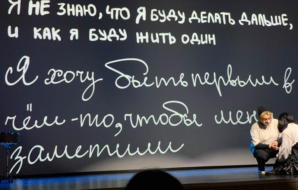 Я НЕ ЗНАЮ, ЧТО Я БУДУ ДЕЛАТЬ ДАЛЬШЕ,
И КАК Я БУДУ ЖИТЬ ОДИН
Я хочу быть первым в
чём-то, чтобы мен
заметили